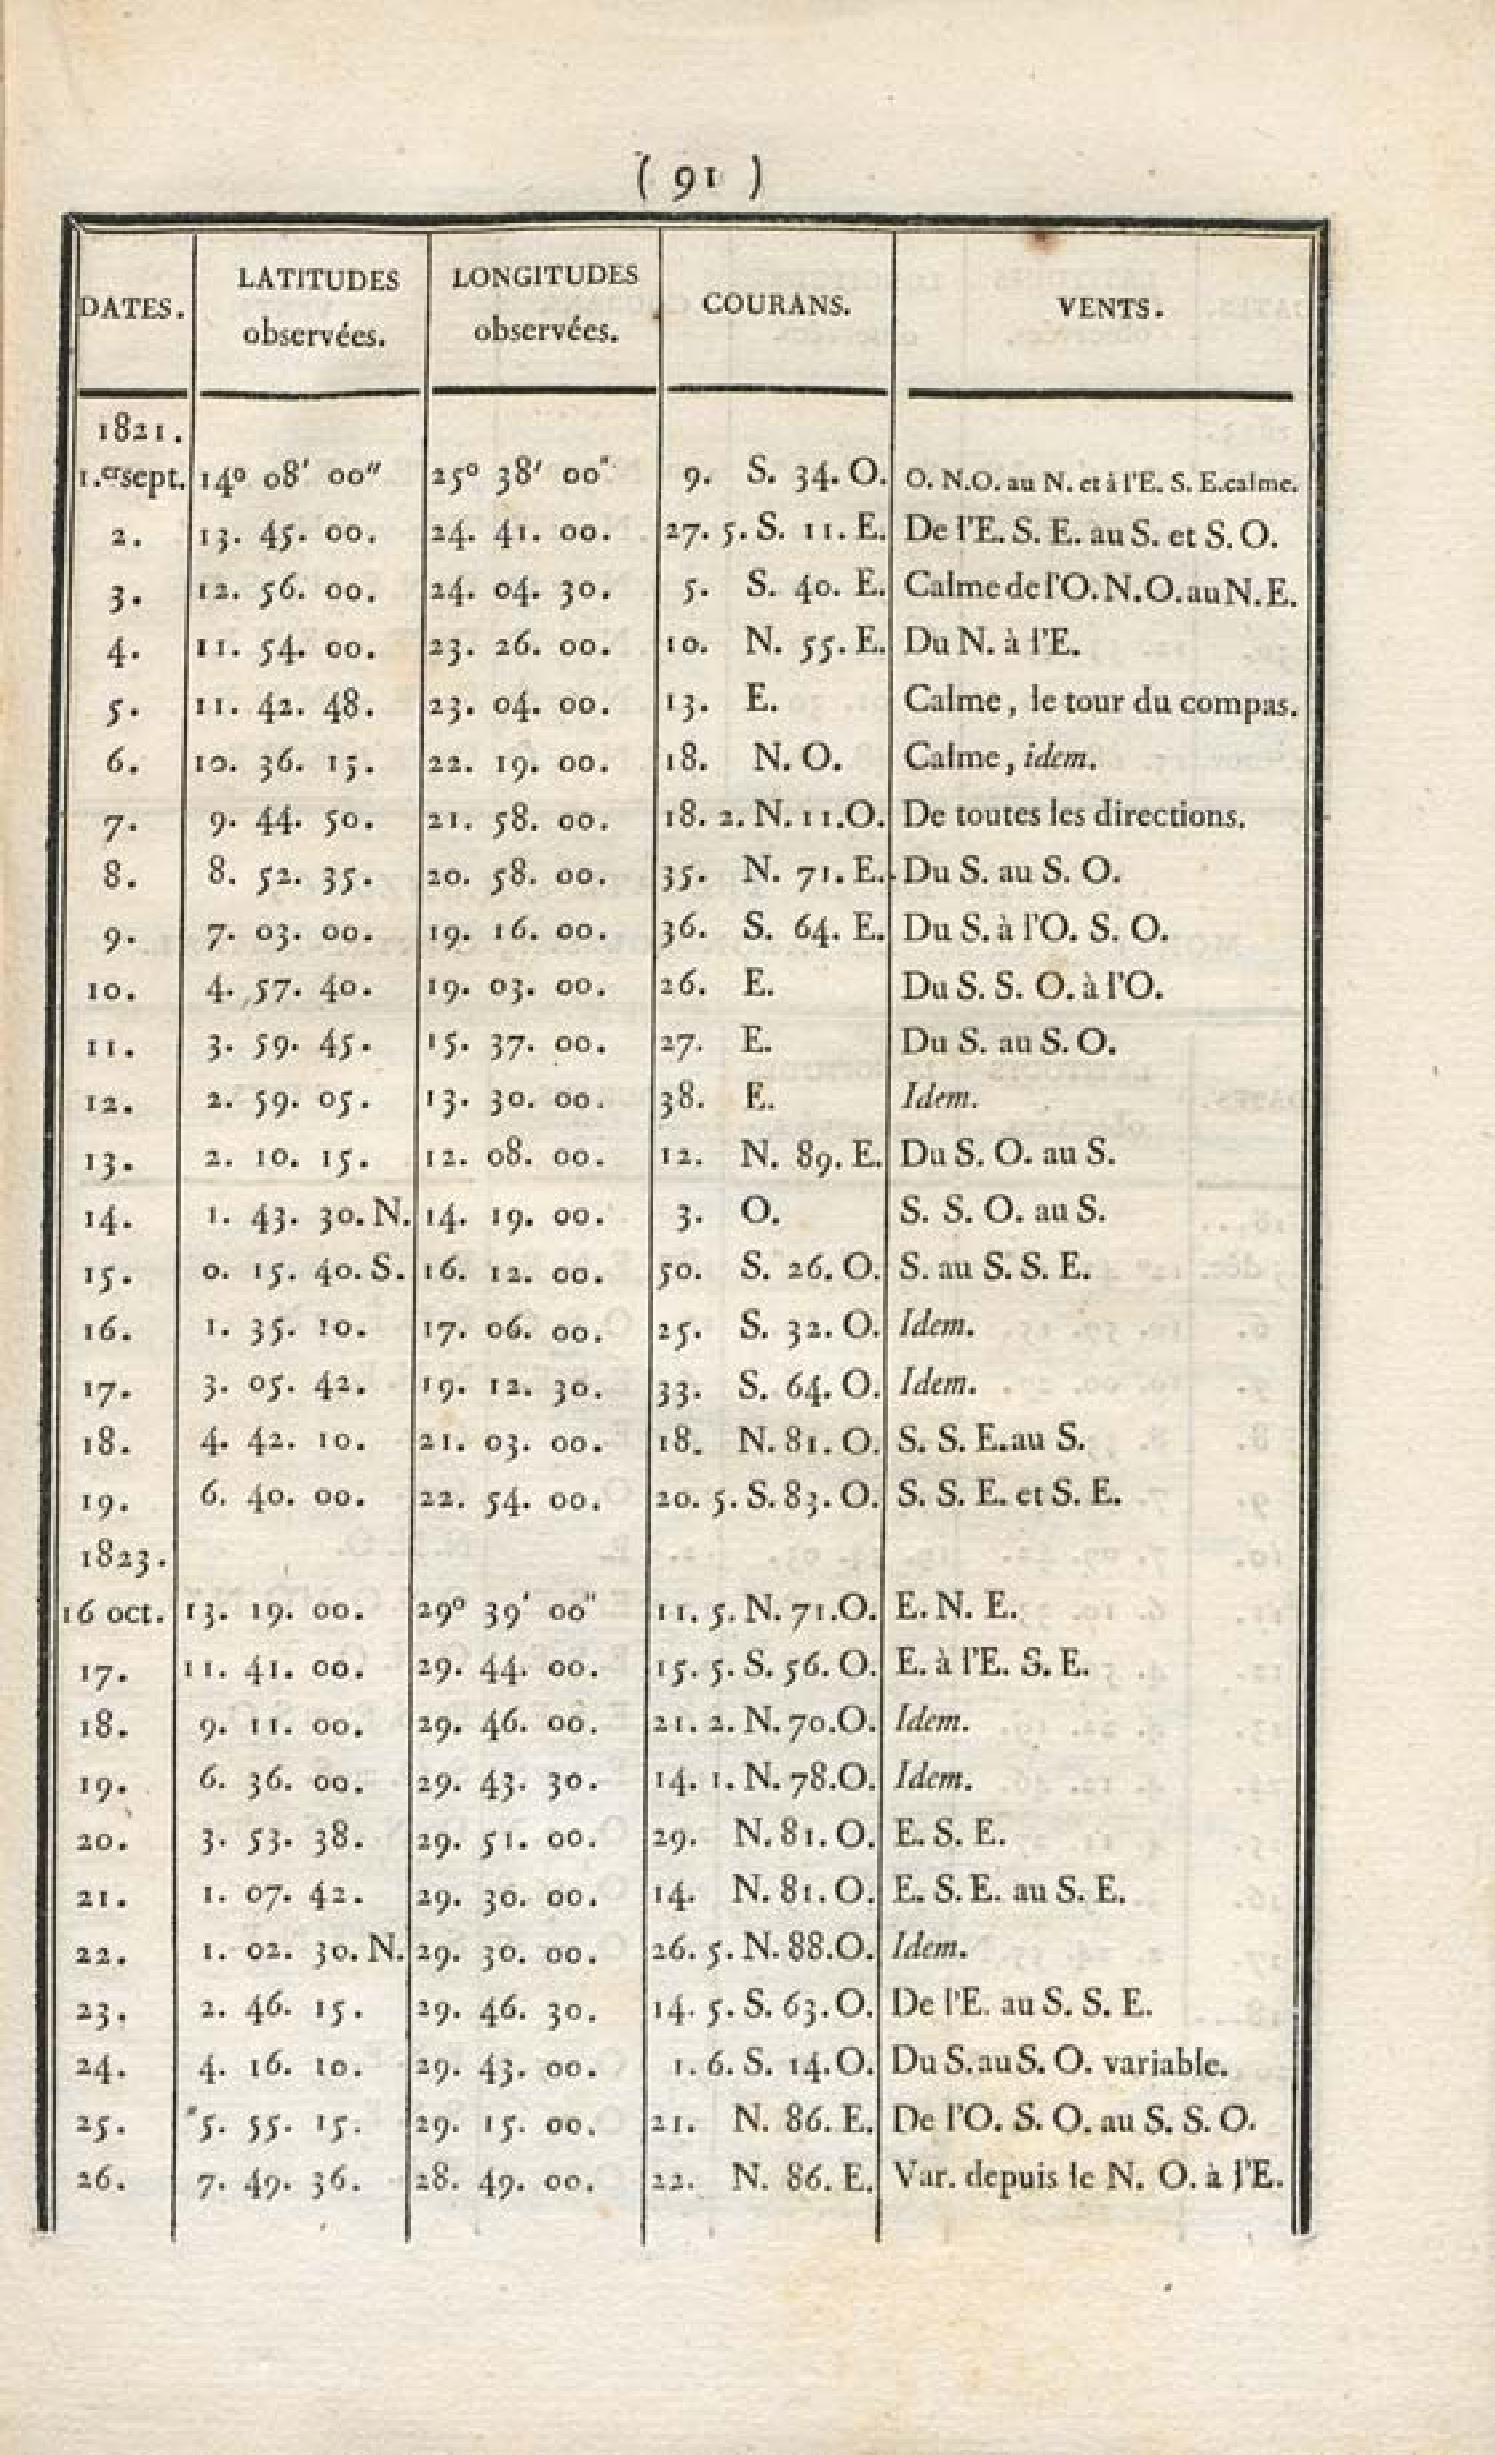 ( 91 )
DATES. LATITUDES observées. LONGITUDES observées. COURANS. VENTS.
1821.
1.er sept. 14° 08' 00" 25° 38' 00" 9. S. 34. O. O. N.O. au N. et à l'E. S. E. calme.
2. 13. 45. 00. 24. 41. 00. 27. 5. S. 11. E. De l'E. S. E. au S. et S. O.
3. 12. 56. 00. 24. 04. 30. 5. S. 40. E. Calme de l'O. N. O. au N. E.
4. 11. 54. 00. 23. 26. 00. 10. N. 55. E. Du N. à l'E.
5. 11. 42. 48. 23. 04. 00. 13. E. Calme, le tour du compas.
6. 10. 36. 15. 22. 19. 00. 18. N. O. Calme, idem.
7. 9. 44. 50. 21. 58. 00. 18. 2. N. 11. O. De toutes les directions.
8. 8. 52. 35. 20. 58. 00. 35. N. 71. E. Du S. au S. O.
9. 7. 03. 00. 19. 16. 00. 36. S. 64. E. Du S. à l'O. S. O.
10. 4. 57. 40. 19. 03. 00. 26. E. Du S. S. O. à l'O.
11. 3. 59. 45. 15. 37. 00. 27. E. Du S. au S. O.
12. 2. 59. 05. 13. 30. 00. 38. E. Idem.
13. 2. 10. 15. 12. 08. 00. 12. N. 89. E. Du S. O. au S.
14. 1. 43. 30. N. 14. 19. 00. 3. O. S. S. O. au S.
15. 0. 15. 40. S. 16. 12. 00. 50. S. 26. O. S. au S. S. E.
16. 1. 35. 10. 17. 06. 00. 25. S. 32. O. Idem.
17. 3. 05. 42. 19. 12. 30. 33. S. 64. O. Idem.
18. 4. 42. 10. 21. 03. 00. 18. N. 81. O. S. S. E. au S.
19. 6. 40. 00. 22. 54. 00. 20. 5. S. 83. O. S. S. E. et S. E.
1823.
16 oct. 13. 19. 00. 29° 39' 00" 11. 5. N. 71. O. E. N. E.
17. 11. 41. 00. 29. 44. 00. 15. 5. S. 56. O. E. à l'E. S. E.
18. 9. 11. 00. 29. 46. 00. 21. 2. N. 70. O. Idem.
19. 6. 36. 00. 29. 43. 30. 14. 1. N. 78. O. Idem.
20. 3. 53. 38. 29. 51. 00. 29. N. 81. O. E. S. E.
21. 1. 07. 42. 29. 30. 00. 14. N. 81. O. E. S. E. au S. E.
22. 1. 02. 30. N. 29. 30. 00. 26. 5. N. 88. O. Idem.
23. 2. 46. 15. 29. 46. 30. 14. 5. S. 63. O. De l'E. au S. S. E.
24. 4. 16. 10. 29. 43. 00. 1. 6. S. 14. O. Du S. au S. O. variable.
25. 5. 55. 15. 29. 15. 00. 21. N. 86. E. De l'O. S. O. au S. S. O.
26. 7. 49. 36. 28. 49. 00. 22. N. 86. E. Var. depuis le N. O. à l'E.